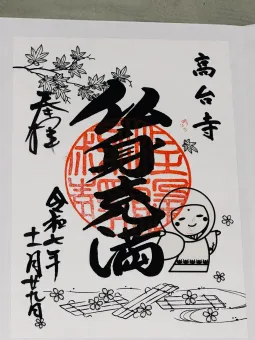 高台寺
仏身充満
奉拝
令和七年
十一月廿九日